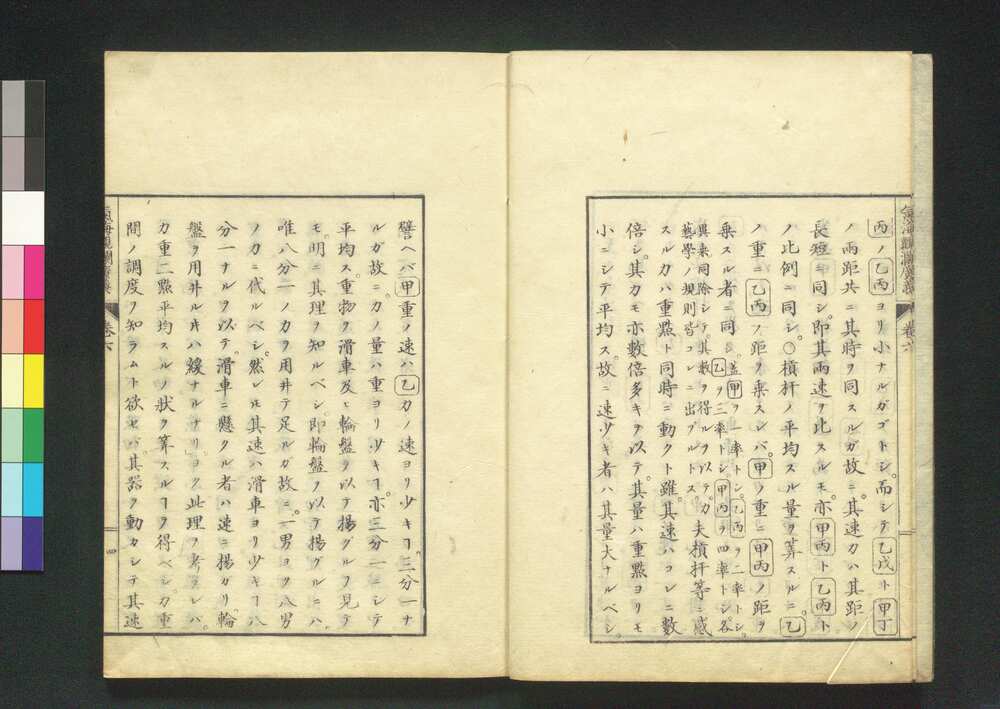 丙ノ乙丙ヨリ小ナルガゴトシ。而シテ乙戊ト甲丁
ノ兩距共ニ其時ヲ同スルガ故ニ。其速力ハ其距ノ
長短ニ同シ。即其兩速ヲ比スルモ。亦甲丙ト乙丙ト
ノ比例ニ同シ。〇槓杆ノ平均スル量ヲ算スルニ。乙
ノ重ニ乙丙ノ距ヲ乗スレバ。甲ノ重ニ甲丙ノ距ヲ
乗スル者ニ同シ。
蓋甲ヲ一率トシ。乙丙ヲ二率トシ。
乙ヲ三率トシ。甲丙ヲ四率トシ。各
異乗同除シテ其數ヲ得ルヲ以テ。
藝學ノ規則皆コレニ出ヅルトス。
力夫槓杆等ニ感
スル力ハ重點ト同時ニ動クト雖。其速ハコレニ數
倍シ。其力モ亦數倍多キヲ以テ。其量ハ重點ヨリモ
小ニシテ平均ス。故ニ速少キ者ハ其量大ナルベシ。
氣海觀瀾廣義
卷六
譬ヘバ甲重ノ速ハ乙力ノ速ヨリ少キヿ。三分一ナ
ルガ故ニ。力ノ量ハ重ヨリ少キヿ。亦三分一ニシテ
平均ス。重物ヲ滑車及ヒ輪盤ヲ以テ揚グルヲ見テ
モ。明ニ其理ヲ知ルベシ。即輪盤ヲ以テ揚グルニハ
唯八分一ノ力ヲ用井テ足ルガ故ニ。一男ヨク八男
ノ力ニ代ルベシ。然レ𪜈其速ハ滑車ヨリ少キヿ八
分一ナルヲ以テ。滑車ニ懸クル者ハ速ニ揚ガリ。輪
盤ヲ用井ル𪜈ハ緩ナルナリ。ヨク此理ヲ考ヘレバ。
力重二點平均スルノ狀ヲ算スルヿヲ得ベシ。力重
間ノ調度ヲ知ラムト欲セバ。其器ヲ動カシテ其速
氣海觀瀾廣義
卷六
四